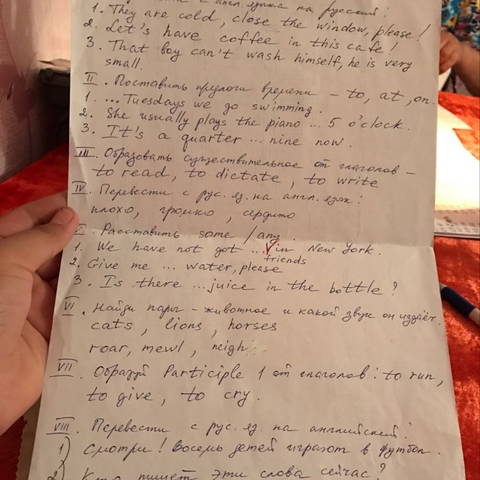 с англ. языка на русский:
1. They are cold, close the window, please!
2. Let's have coffee in this cafe!
3. That boy can't wash himself, he is very
small.
II. Поставить предлоги времени - to, at, on.
1. ... Tuesdays we go swimming.
2. She usually plays the piano ... 5 o'clock.
3. It's a quarter ... nine now.
III. Образовать существительное от глаголов -
to read, to dictate, to write
IV. Перевести с рус. яз. на англ. язык:
плохо, громко, сердито
V. Расставить some / any.
1. We have not got ... in New York.
friends
2. Give me ... water, please
3. Is there ... juice in the bottle?
VI. Найди пары - животное и какой звук он издаёт.
cats, lions, horses
roar, mewl, neigh
VII. Образуй Participle 1 от глаголов: to run,
to give, to cry.
VIII. Перевести с рус. яз. на английский:
1) Смотри! Восемь детей играют в футбол.
2) Кто пишет эти слова сейчас?